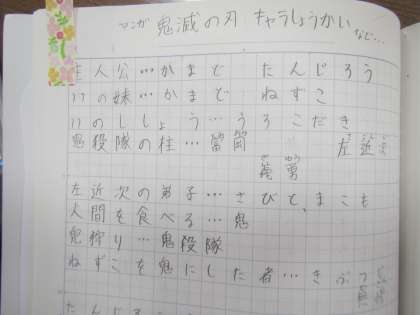 マンガ 鬼滅の刃 キャラしょうかい など…
主人公…かまど たんじろう
〃の妹…かまど ねずこ
〃のししょう…うろこだき 左近
鬼殺隊の柱…冨岡 義勇
左近次の弟子…さびと、まこも
人間を食べる…鬼
鬼狩り…鬼殺隊
ねずこを鬼にした者…きぶつ
たんじ